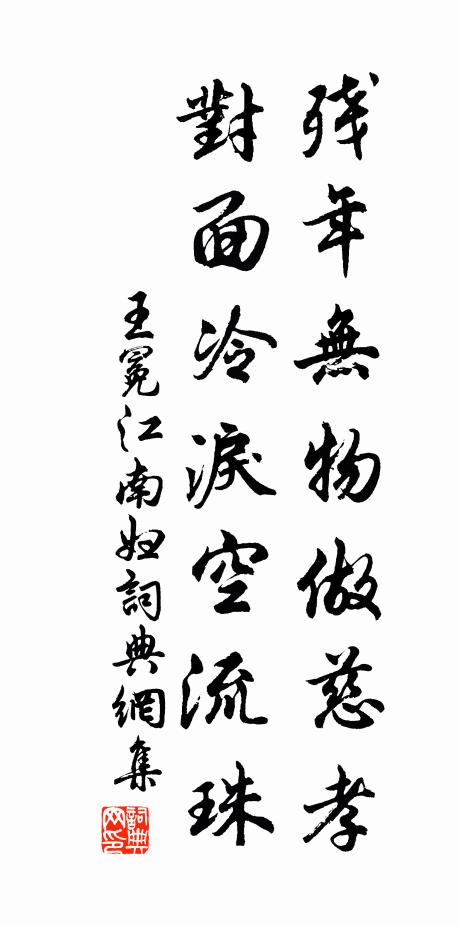 殘年無物做慈孝
對面冷淚空流珠
王冕江南妇詞典網集
詞典网印